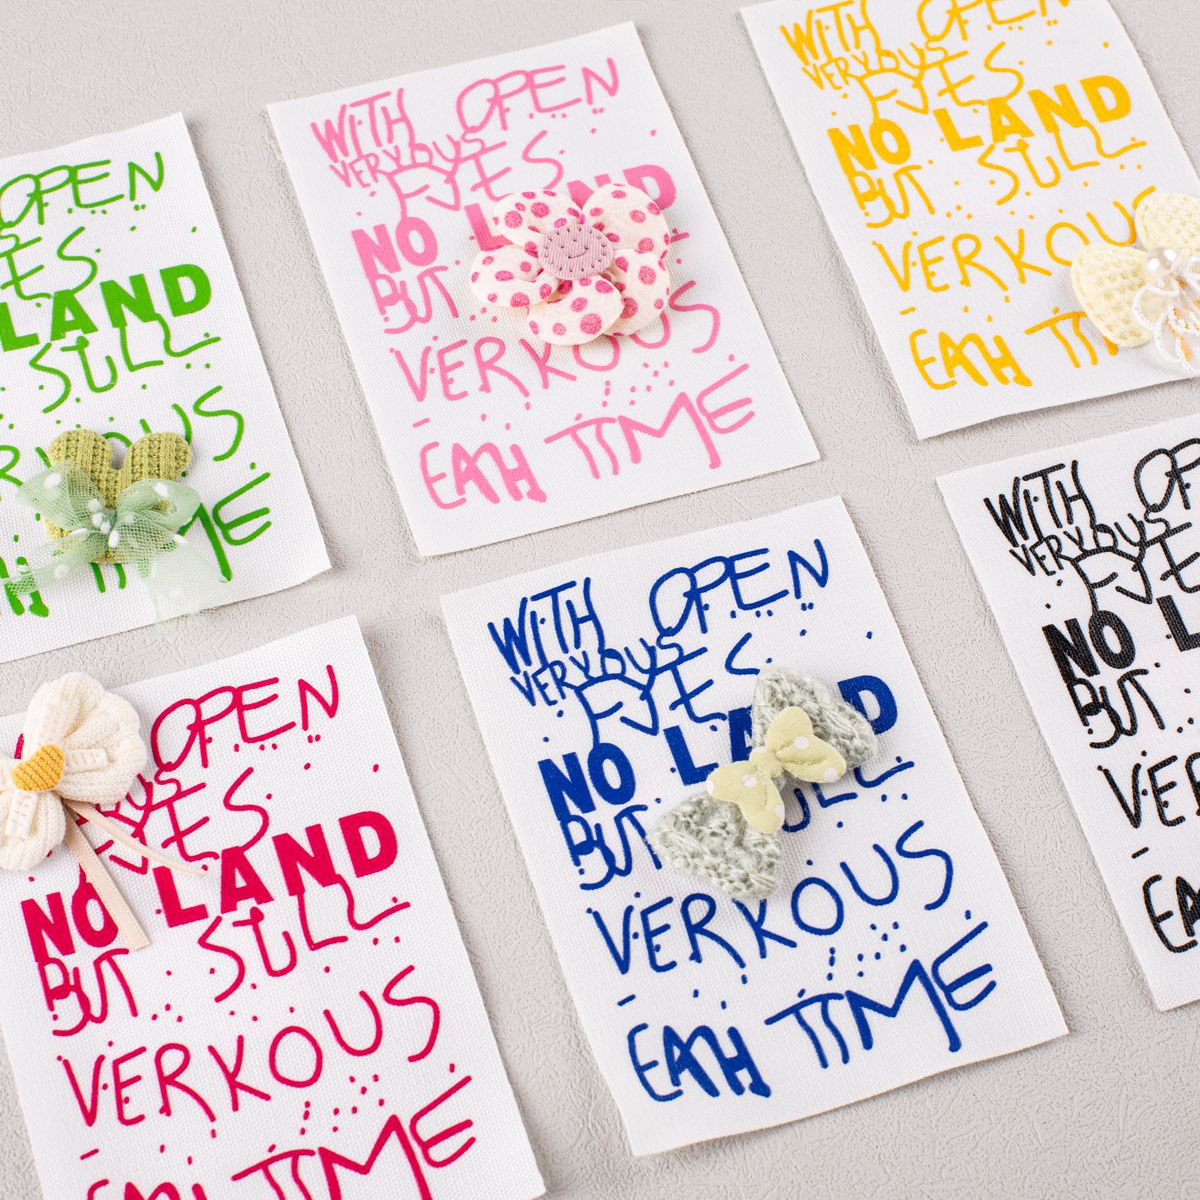 OPEN
ES
LAND
STILL
RKOUS
H TIME
WITH OPEN
VERVOUS
EVES
NO LAND
BUT
VERKOUS
EAH TIME
WITH OPEN
VERVOUS
EVES
NO LAND
BUT STILL
VERKOUS
EAH TI
OPEN
EVES
NO LAND
BUT STILL
VERKOUS
TIME
WITH OPEN
VERVOUS
EVES
NO LAND
BUT
VERKOUS
EAH TIME
WITH OP
VERVOUS
EVE
NO L
BUT
VER
EAH